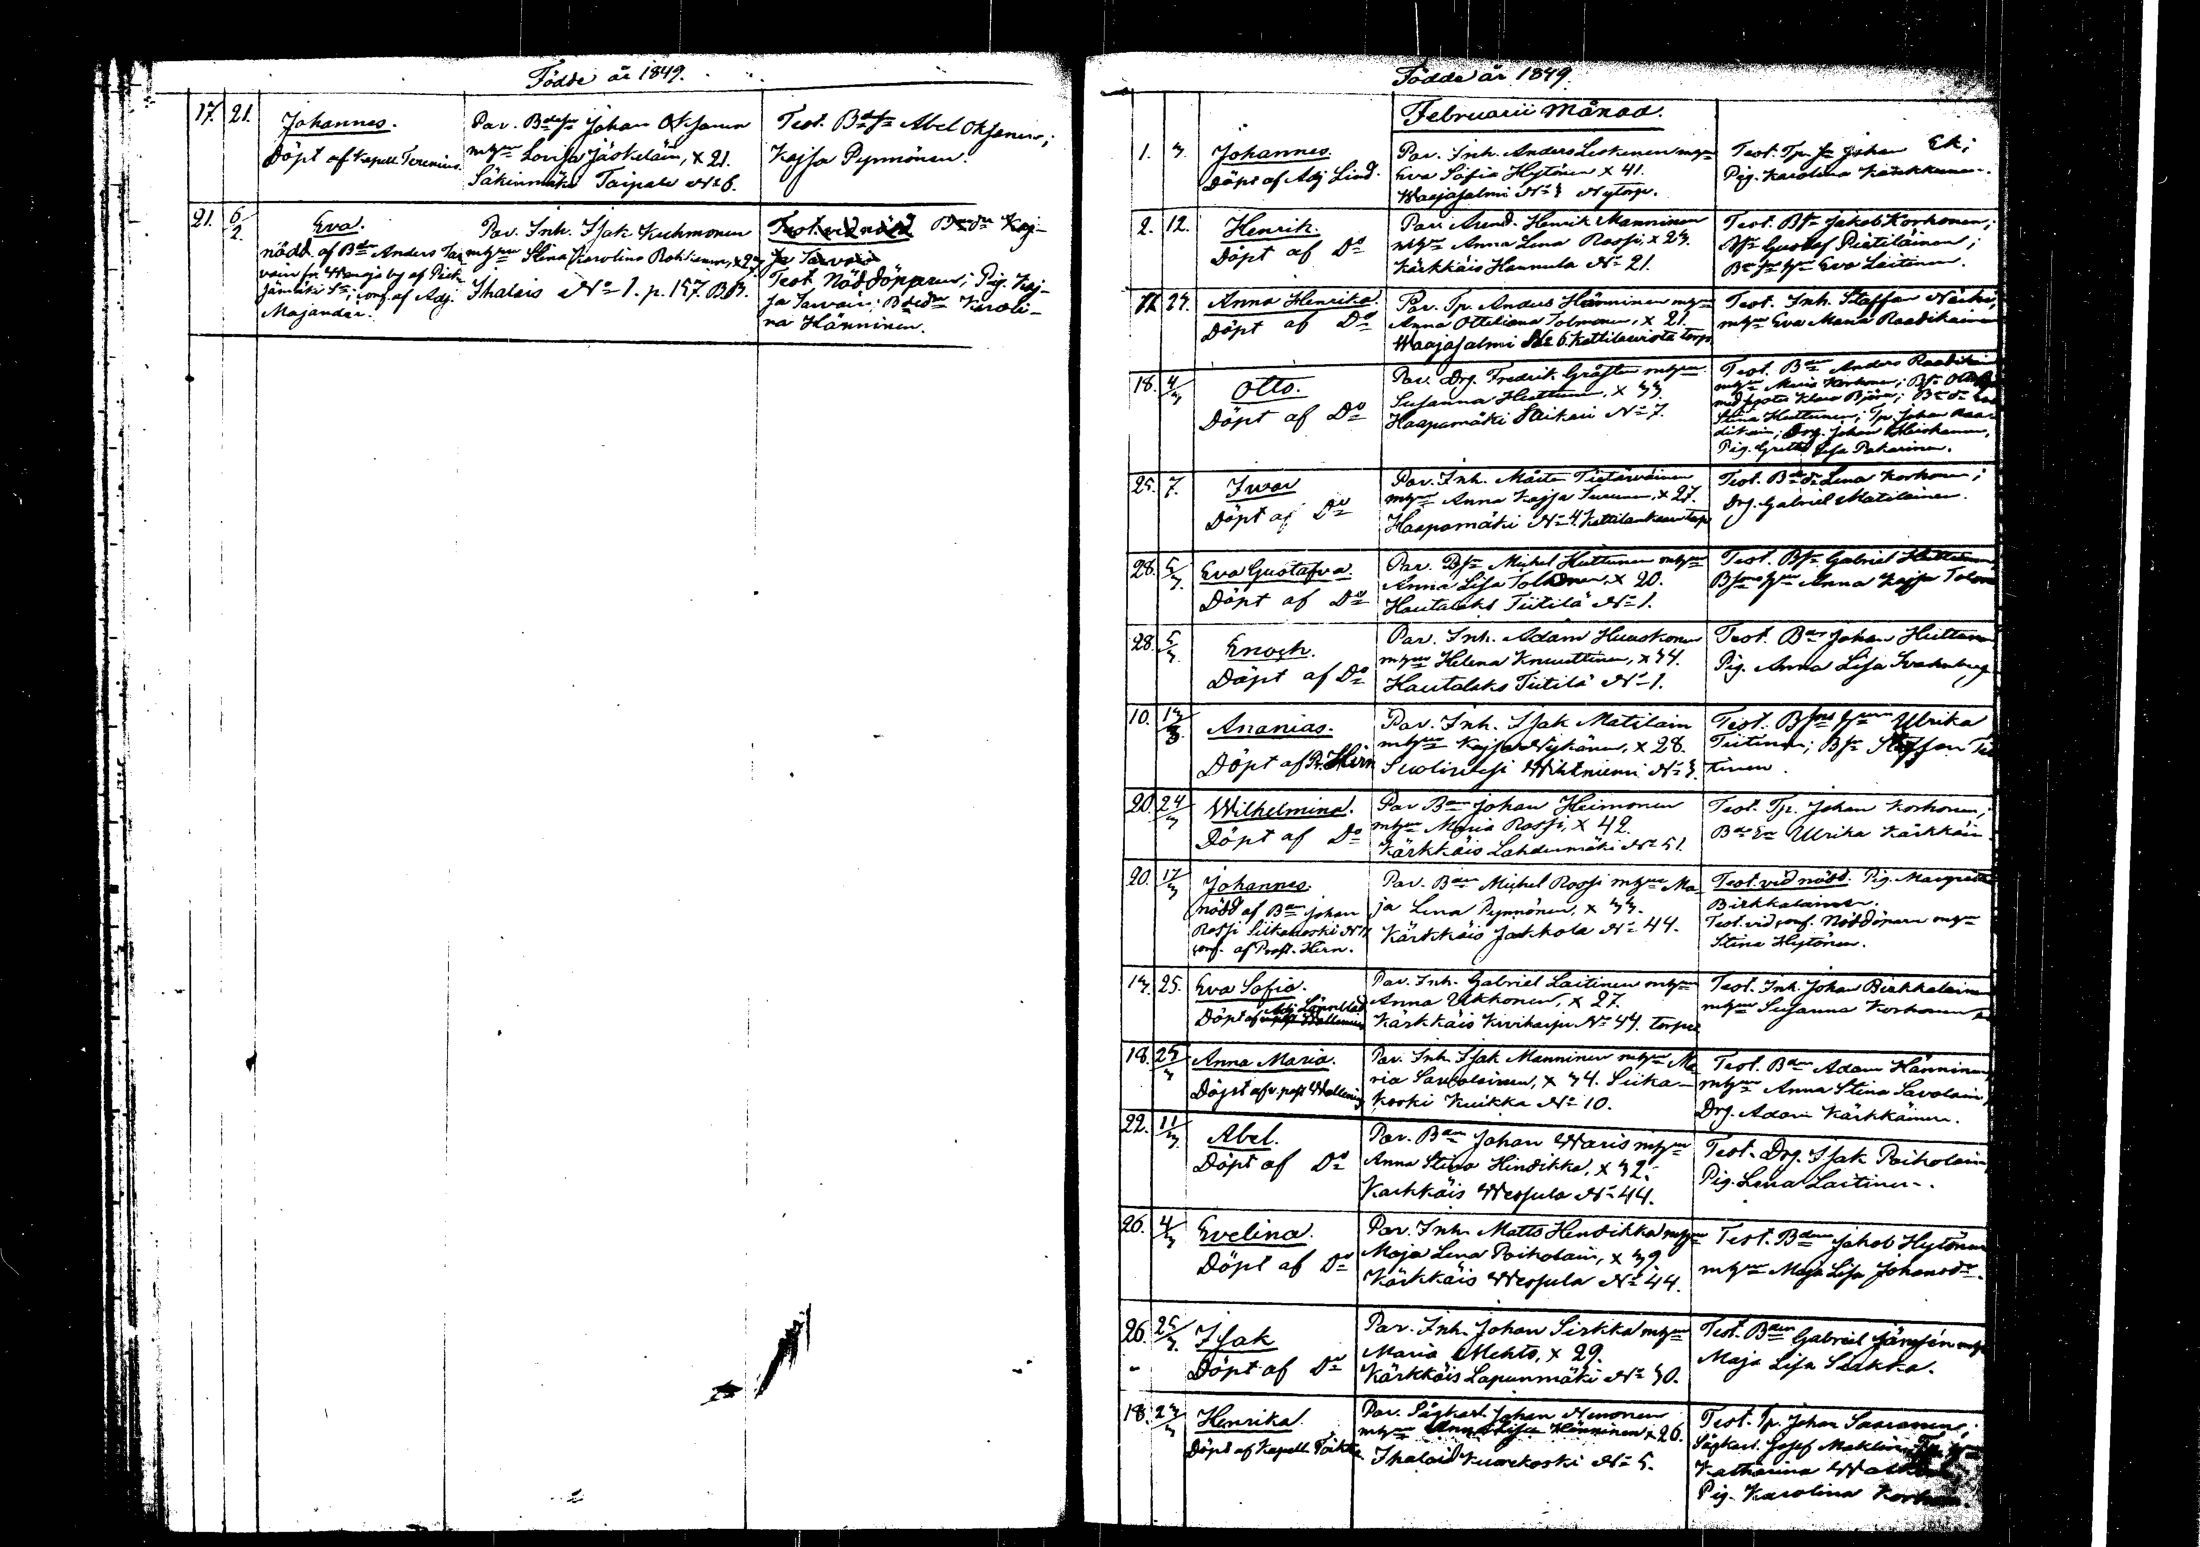 Födde år 1849.
17. 21. Johannes.
Döpt af Kapell. Terenius.
Par. Bdesn Johan Oksanen
mhgn Lovisa Jäskeläin, x 21.
Säkinmäki Taipale No 6.
Test. Bdsn Abel Oksanen;
Kajsa Pynnönen.
21. 6/2. Eva.
nödd. af Bdn Anders Tar
vain fr. Wanaja by af Pieks
jämäki Sn; conf. af Adj.
Majander.
Par. Inh. Isak Kuhmonen
mhgn Stina Karolina Rahkonen, x
Ihalais No 1. p. 157. BB.
Test. vid nödd Kaj-
sa Tarvain
Test. Nöddöpparen; Pig. Kaj-
sa Tarvain; Karoli-
na Hänninen.
Födde år 1849.
Februarii Månad.
1. 3. Johannes.
Döpt af Adj Lind.
Par. Inh. Anders Leskinen mhgn
Eva Sofia Hytönen x 41.
Waajasalmi No 3 Nytorp.
Test. Tp. Sn Johan Ek;
Pig. Karolina Kärkkäinen.
2. 12. Henrik.
Döpt af Do
Par. Arend. Henrik Manninen
mhgn Anna Lena Rossi, x 23.
Kärkkäis Hannula No 21.
Test. Bsn Jakob Korhonen;
Bsn Gustaf Pietiläinen;
Eva Laitinen.
11. 23. Anna Henrika.
Döpt af Do
Par. Tp. Anders Hänninen mhgn
Anna Ottiliana Tolmonen, x 21.
Waajasalmi No 6 torp.
Test. Inh. Staffan
mhgn Eva Maria Raadikainen
18. 4/3 Otto.
Döpt af Do
Par. Drg. Fredrik Grästen mhgn
Susanna Huttunen, x 33.
Haapamäki Stikari No 7.
Test. Bdn Anders Raadikain
mhgn Maria Korhonen;
Stina Huttunen; Tp. Johan Raa
dikain; Drg. Johan
Pig. Greta Lisa Pakarinen.
25. 7. Iwar
Döpt af Do
Par. Inh. Mårten Tietäväinen
mhgn Anna Kajsa Surinen, x 27.
Haapamäki No 4 torp
Test. Lena Korhonen;
Drg. Gabriel Matilainen.
28. 5/3. Eva Gustafva.
Döpt af Do
Par. Bsn Michel Huttunen mhgn
Anna Lisa Tolonen, x 20.
Hautalaks Tiitilä No 1.
Test. Bsn Gabriel Huttunen,
Anna Kajsa Tolonen
28. 5/3. Enoch.
Döpt af Do
Par. Inh. Adam Huuskonen
mhgn Helena Knuuttinen, x 34.
Hautalaks Tiitilä No 1.
Test. Bdn Johan Huttunen
Pig. Anna Lisa
10. 13/3. Ananias.
Döpt af Pr. Hirn
Par. Inh. Isak Matilain
mhgn Kajsa Nykänen, x 28.
Suolivesi Wihtniemi No 3.
Test. Ulrika
Tiitinen; Bsn Staffan Tii
tinen.
20. 24/3 Wilhelmina.
Döpt af Do
Par Bdn Johan Heimonen
mhgn Maria Rossi, x 42.
Kärkkäis Lahdenmäki No 51.
Test. Tp. Johan Korhonen;
Ulrika Kärkkäin
20. 17/3 Johannes.
nödd af Bdn Johan
Rossi Siikakoski No
conf. af Prost. Hirn.
Par. Bdn Michel Rossi mhgn Ma
ja Lena Pynnönen, x 33.
Kärkkäis Jakkola No 44.
Test. vid nödd. Pig. Margreta
Birkkalainen.
Test. vid conf. Nöddöparen mhgn
Stina Hytönen.
13. 25. Eva Sofia.
Döpt af Adj Lönnblad
Par. Inh. Gabriel Laitinen mhgn
Anna Ukkonen, x 27.
Kärkkäis Kiviharju No 44. torpet
Test. Inh. Johan Birkkalainen
mhgn Susanna Korhonen
18. 25/3 Anna Maria.
Döpt af v. past Wallenius
Par. Inh. Isak Manninen mhgn Ma
ria Savolainen, x 34. Siika-
koski Kuikka No 10.
Test. Bdn Adam Hänninen
mhgn Anna Stina Savolain,
Drg. Adam Kärkkäinen.
22. 11/3 Abel.
Döpt af Do
Par. Bdn Johan Waris mhgn
Anna Stina Hindikka, x 32.
Karkkäis Wessula No 44.
Test. Drg. Isak Roikolain
Pig. Lena Laitinen.
26. 4/3 Evelina.
Döpt af Do
Par. Inh. Matts Hindikka mhgn
Maja Lena Roikolain, x 39.
Kärkkäis Wessula No 44.
Test. Bdn Jakob Hytönen
mhgn Maja Lisa Johansdr.
26. 25/3. Isak
Döpt af Do
Par. Inh. Johan Sirkka mhgn
Maria Mehto, x 29.
Kärkkäis Lapunmäki No 30.
Test. Bdn Gabriel Jämsén mhgn
Maja Lisa Sirkka.
18. 23/3 Henrika.
Döpt af Kapell.
Par. Sågkarl. Johan Nenonen
mhgn Anna Lisa Hänninen x 26.
Ihalais Kuvekoski No 5.
Test. Tp. Johan Saaranen;
Sågkarl. Josef Meklin
Katharina
Pig. Karolina Korhonen.